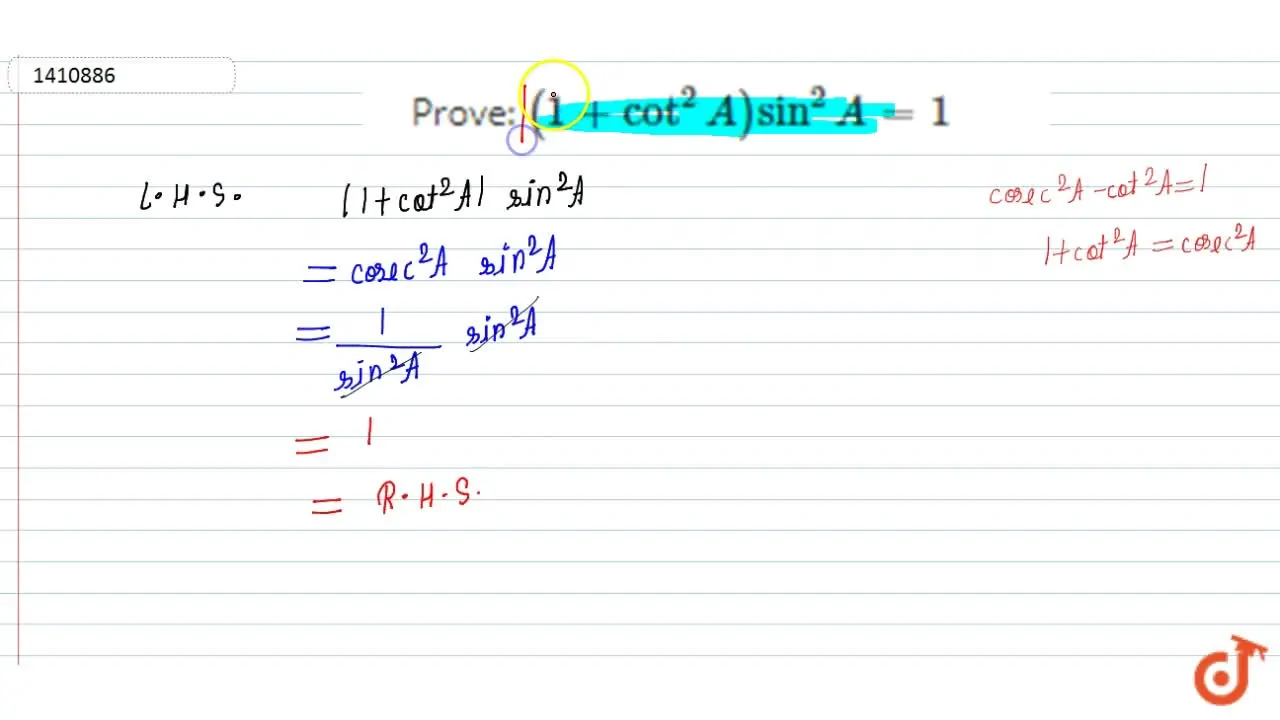 1410886
Prove: (1 + cot² A) sin² A = 1
L.H.S. (1+cot²A) sin²A
= cosec²A sin²A
= 1/sin²A sin²A
= 1
= R.H.S.
cosec²A - cot²A = 1
1+cot²A = cosec²A